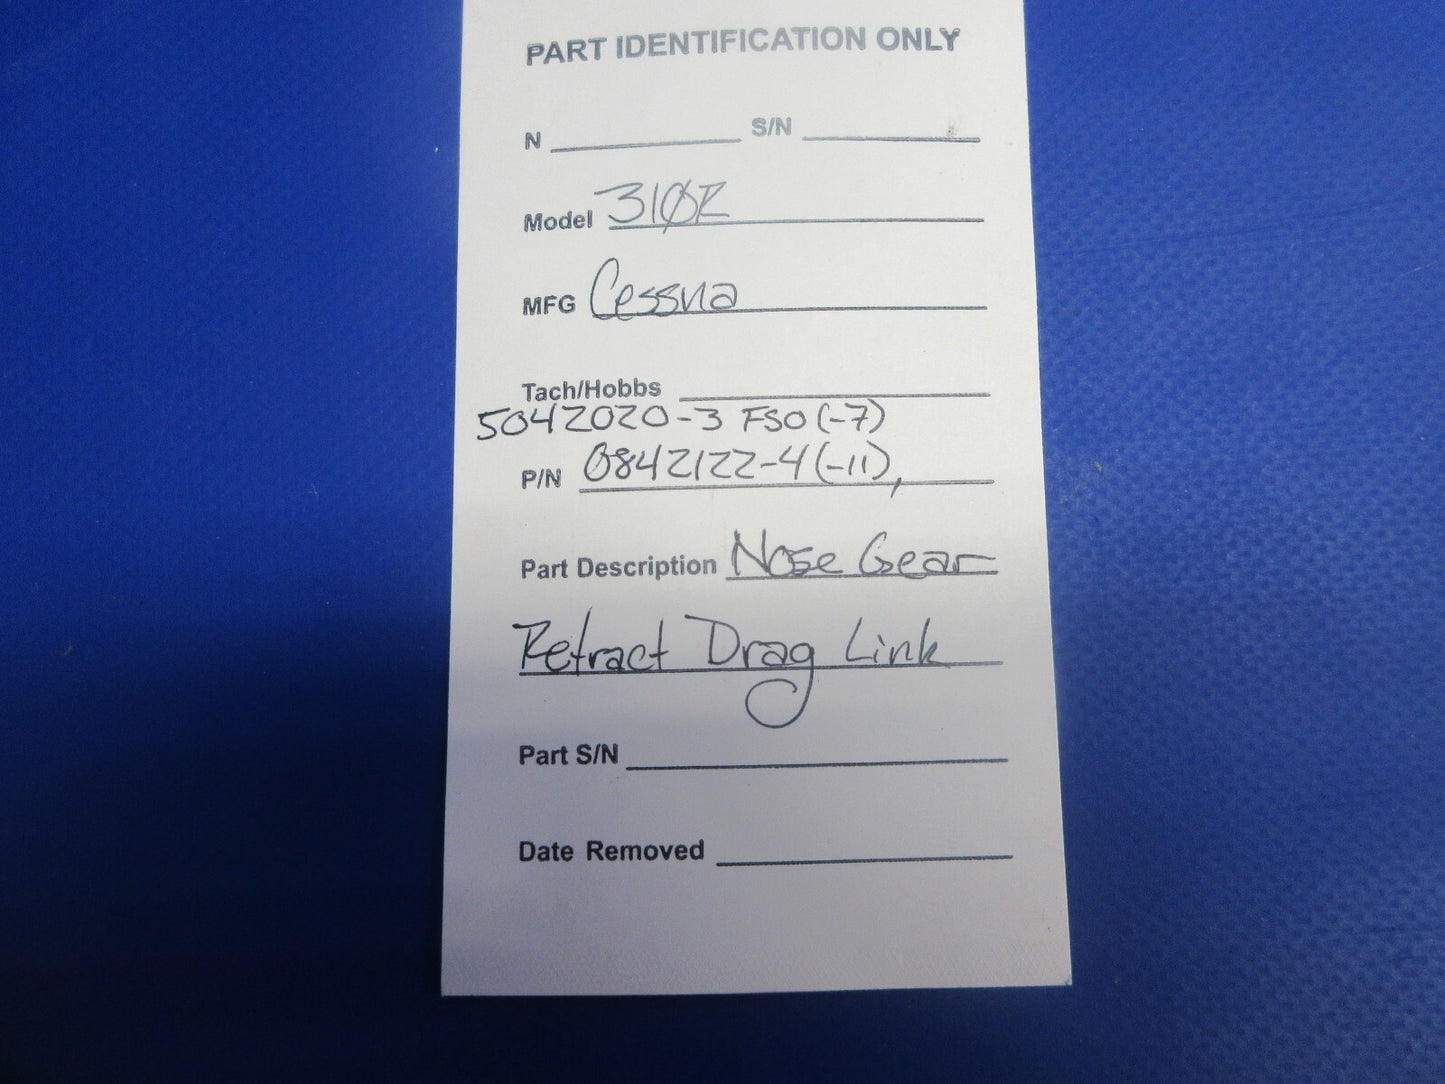 PART IDENTIFICATION ONLY
N S/N
Model 310R
MFG Cessna
Tach/Hobbs
5042020-3 FSO (-7)
P/N 0842122-4 (-11),
Part Description Nose Gear
Retract Drag Link
Part S/N
Date Removed